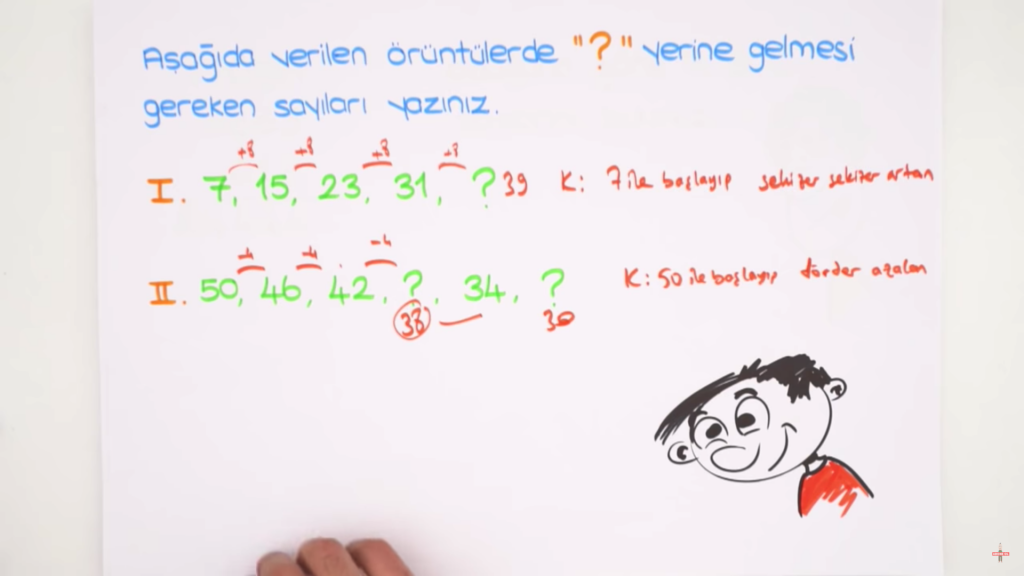 Aşağıda verilen örüntülerde "?" yerine gelmesi
gereken sayıları yazınız.
+8 +8 +8 +8
I. 7, 15, 23, 31, ? 39 K: 7 ile başlayıp sekizer sekizer artan
-4 -4 -4
II. 50, 46, 42, ?, 34, ? K: 50 ile başlayıp dörder azalan
38 30